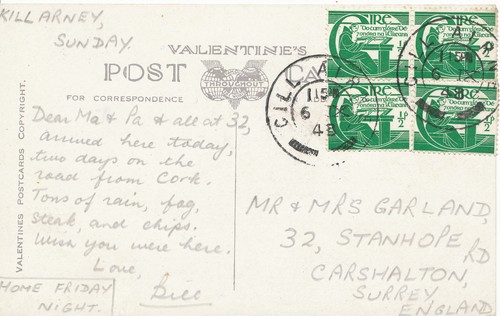 KILLARNEY,
SUNDAY.
VALENTINE'S
POST CARD
THROUGHOUT
FOR CORRESPONDENCE
VALENTINES POSTCARDS COPYRIGHT.
Dear Ma & Pa & all at 32,
arrived here today,
two days on the
road from Cork.
Tons of rain, fog,
steak, and chips.
Wish you were here.
Love,
Bill
HOME FRIDAY
NIGHT.
EIRE
½p
EIRE
½p
EIRE
½p
EIRE
½p
CILL AIR
1154
6
48
MR & MRS GARLAND,
32, STANHOPE
RD
CARSHALTON,
SURREY,
ENGLAND